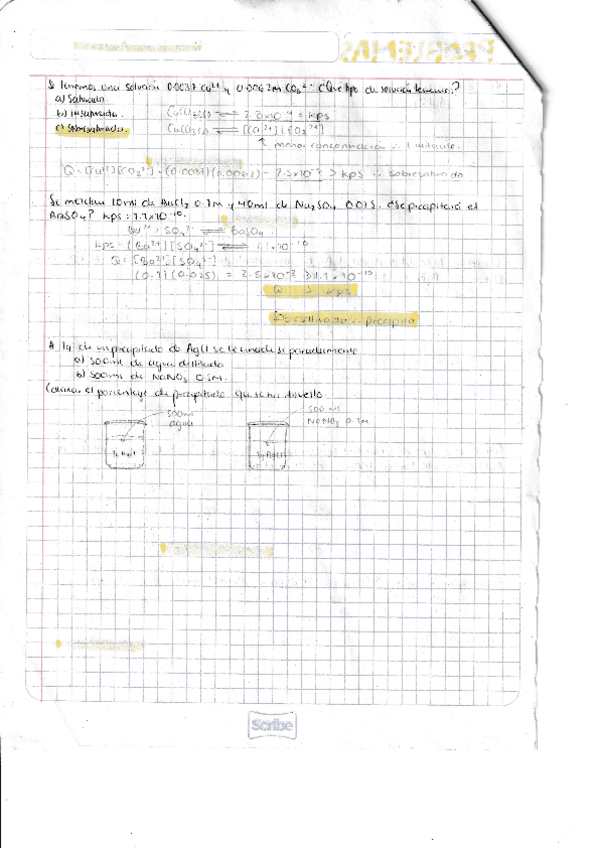 Si tenemos una solución 0.0037 Ca²⁺ y 0.0062M CO₃²⁻ ¿Que tipo de solución tenemos?
a) Saturada
b) Insaturada.
c) Sobresaturada.
CaCO₃(s) ⇌ Kps
CaCO₃(s) ⇌ [Ca²⁺][CO₃²⁻]
↑ menor concentración
Q = [Ca²⁺][CO₃²⁻] = (0.0037)(0.0062) = > Kps ∴ sobresaturada
Se mezclan 10ml de BaCl₂ 0.1M y 40ml de Na₂SO₄ 0.025. ¿Se precipitará el
BaSO₄? Kps = 1.1x10⁻¹⁰.
Ba²⁺ + SO₄²⁻ ⇌ BaSO₄
Kps = [Ba²⁺][SO₄²⁻] ⇌ 1.1x10⁻¹⁰
Q = [Ba²⁺][SO₄²⁻]
(0.1)(0.025) = 2.5x10⁻³ > 1.1x10⁻¹⁰
Q > Kps
Sobresaturada ∴ precipita
A 1g de un precipitado de AgCl se le añade separadamente
a) 500ml de agua destilada
b) 500ml de NaNO₃ 0.1M.
Calcular el porcentaje de precipitado que se ha disuelto.
500ml
agua
1g AgCl
500 ml
NaNO₃ 0.1M
1g AgCl
Scribe